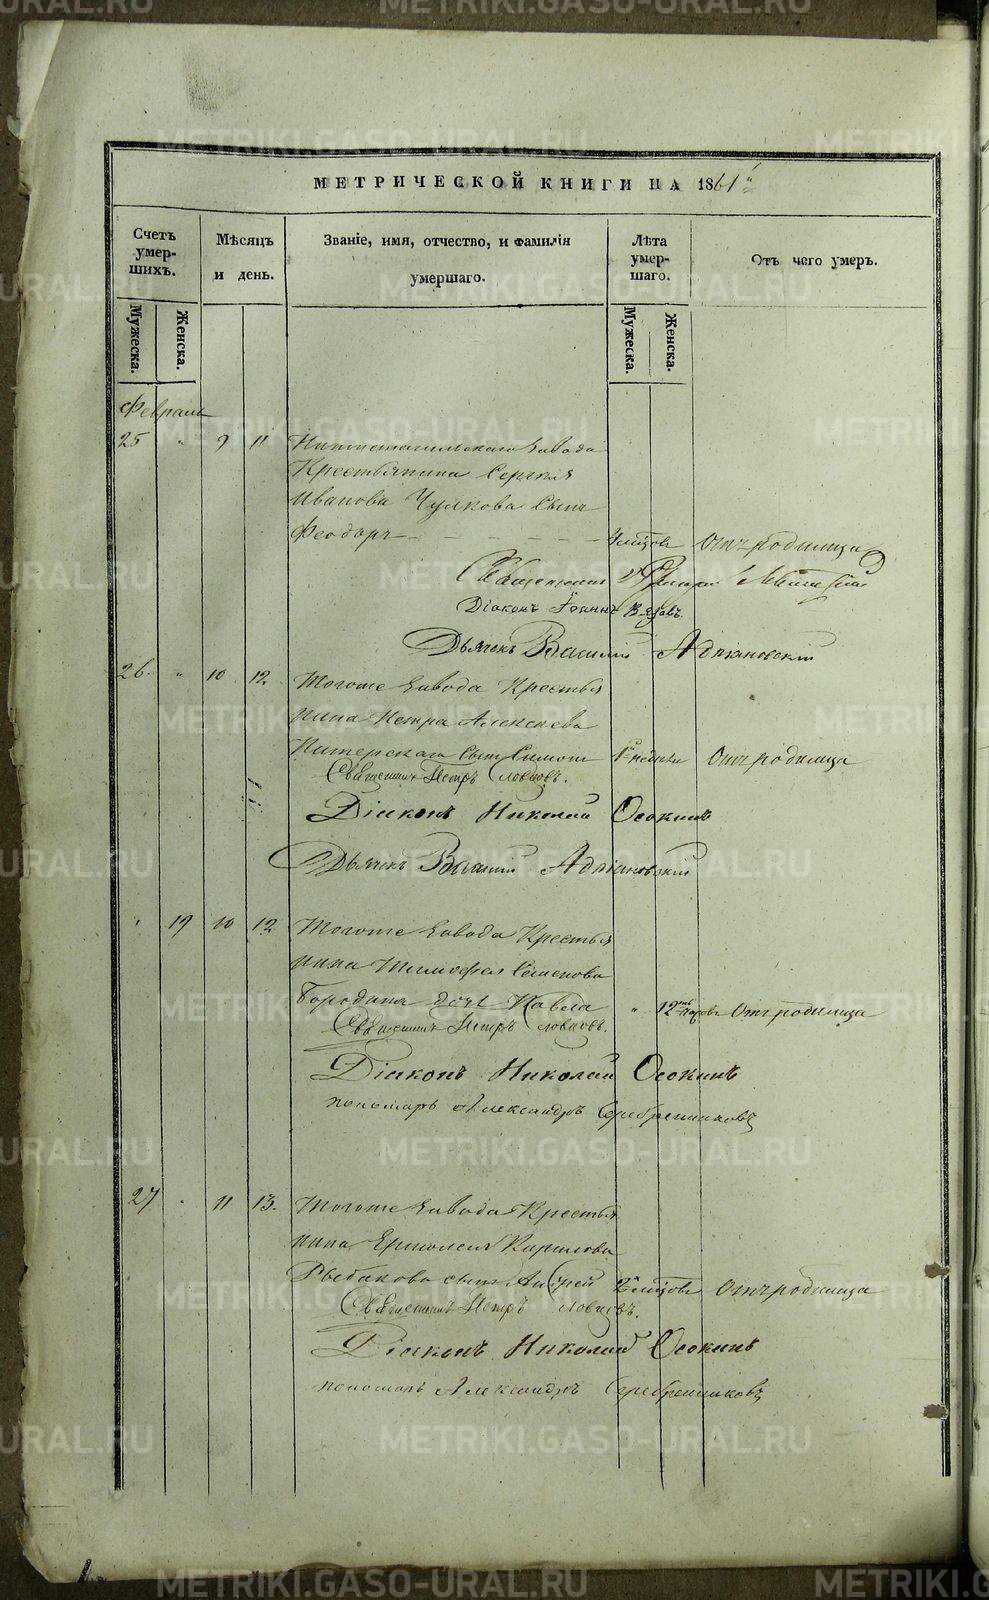 METRIKI.GASO-URAL.RU
МЕТРИЧЕСКОЙ КНИГИ НА 1861й
Счетъ умер-шихъ.
Мѣсяцъ и день.
Званіе, имя, отчество, и фамилія умершаго.
Лѣта умер-шаго.
Отъ чего умеръ.
Мужеска.
Женска.
Мужеска.
Женска.
Февраль
25 " 9 11 Нижнетагильскаго Завода
Крестьянина Сергѣя
Иванова Чулкова Сынъ
Феодоръ мѣсяцовъ Отъ родимца
Священникъ
Діаконъ Іоаннъ
Дьячекъ Василій Адріановскій
26. " 10 12. Тогоже Завода Крестья
нина Петра Алексѣева
Питерскаго Сынъ Симонъ недѣли Отъ родимца
Священникъ Петръ Словцовъ.
Діаконъ Николай Осокинъ
Дьячекъ Василій Адріановскій
" 19 10 12 Тогоже Завода Крестья
нина Тимофея Семенова
Бородина дочь Павла " 12 Отъ родимца
Священникъ Петръ Словцовъ.
Діаконъ Николай Осокинъ
пономарь Александръ Серебренниковъ
27 " 11 13. Тогоже Завода Крестья
нина Ермолая Кирилова
Рыбакова сынъ Андрей мѣсяцовъ Отъ родимца
Священникъ Петръ Словцовъ.
Діаконъ Николай Осокинъ
пономарь Александръ Серебренниковъ